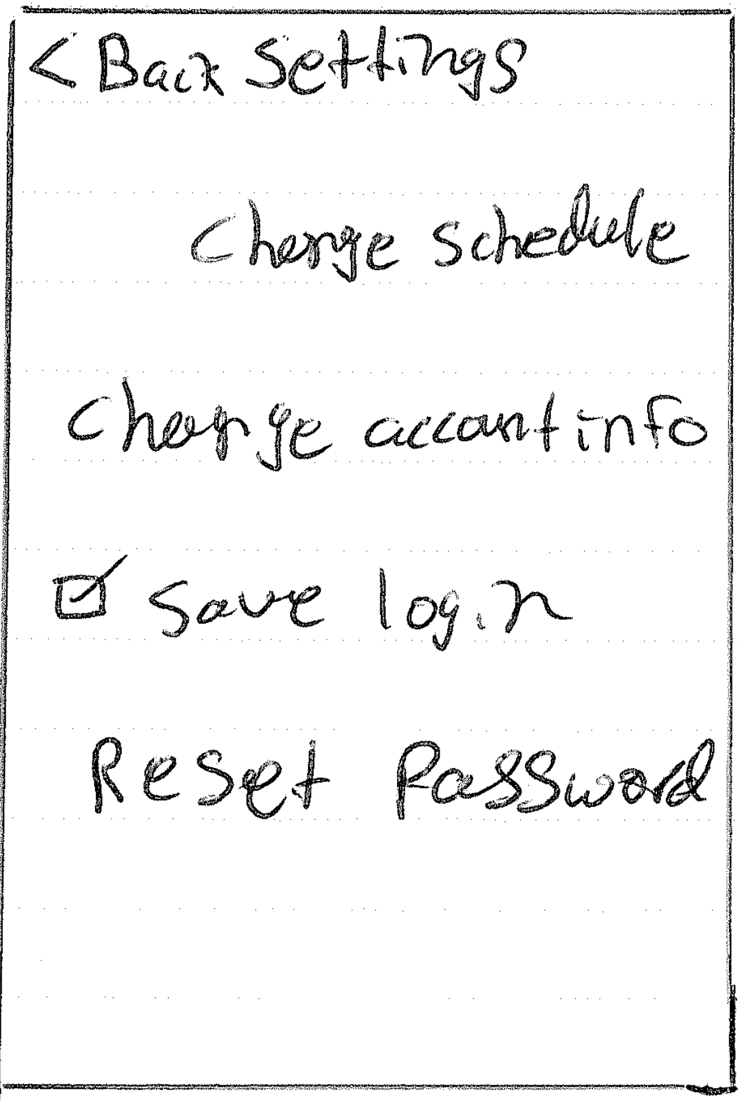 < Back Settings
Change schedule
Change account info
☑ Save login
Reset Password